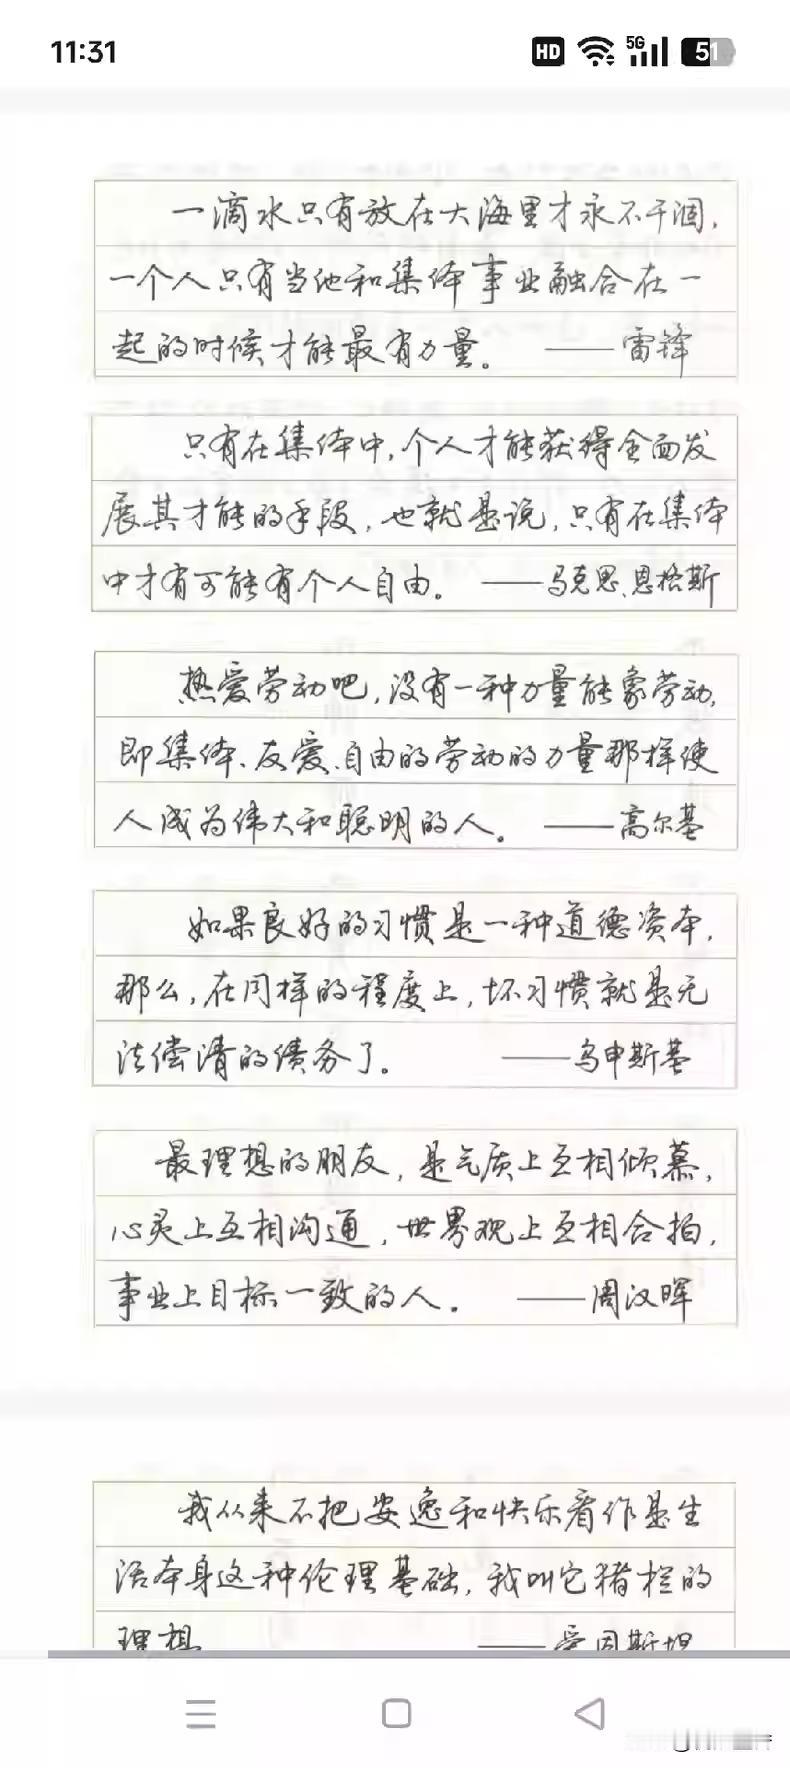 11:31
HD 5G 51
一滴水只有放在大海里才永不干涸，
一个人只有当他和集体事业融合在一
起的时候才能最有力量。 ——雷锋
只有在集体中，个人才能获得全面发
展其才能的手段，也就是说，只有在集体
中才有可能有个人自由。 ——马克思、恩格斯
热爱劳动吧，没有一种力量能象劳动，
即集体、友爱、自由的劳动的力量那样使
人成为伟大和聪明的人。 ——高尔基
如果良好的习惯是一种道德资本，
那么，在同样的程度上，坏习惯就是无
法偿清的债务了。 ——乌申斯基
最理想的朋友，是气质上互相倾慕，
心灵上互相沟通，世界观上互相合拍，
事业上目标一致的人。 ——周汉晖
我从来不把安逸和快乐看作是生
活本身这种伦理基础，我叫它猪栏的
理想 ——爱因斯坦